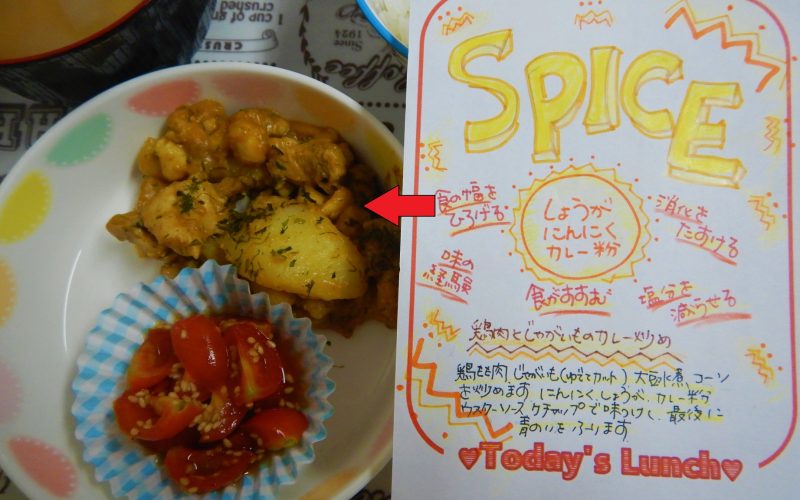 1 CUP OF
CRUSHED
Since
1924
Coffee
SPICE
食の幅を
ひろげる
しょうが
にんにく
カレー粉
消化を
たすける
味の
経験
食がすすむ
塩分を
減らせる
鶏肉とじゃがいものカレー炒め
鶏もも肉 じゃがいも(ゆでてカット) 大豆水煮、コーン
を炒めます にんにく、しょうが、カレー粉
ウスターソース、ケチャップで味つけし、最後に
青のりをふります
♥Today's Lunch♥